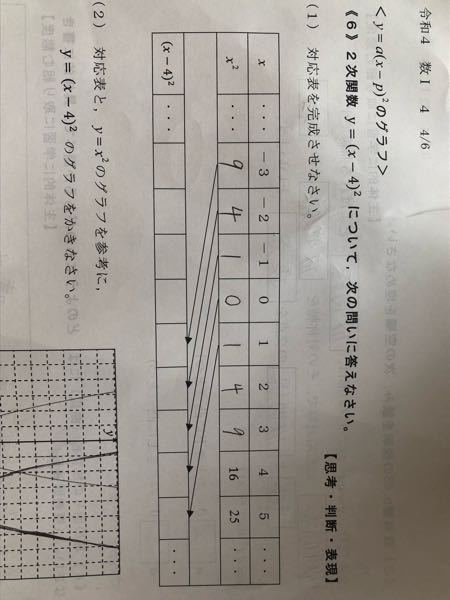 令和4 数Ⅰ 4 4/6
<y=a(x-p)²のグラフ>
《6》2次関数 y=(x-4)² について，次の問いに答えなさい。
【思考・判断・表現】
(1) 対応表を完成させなさい。
x ... -3 -2 -1 0 1 2 3 4 5 ...
x² ... 9 4 1 0 1 4 9 16 25 ...
(x-4)² ... ...
(2) 対応表と，y=x²のグラフを参考に，
y=(x-4)² のグラフをかきなさい。
y